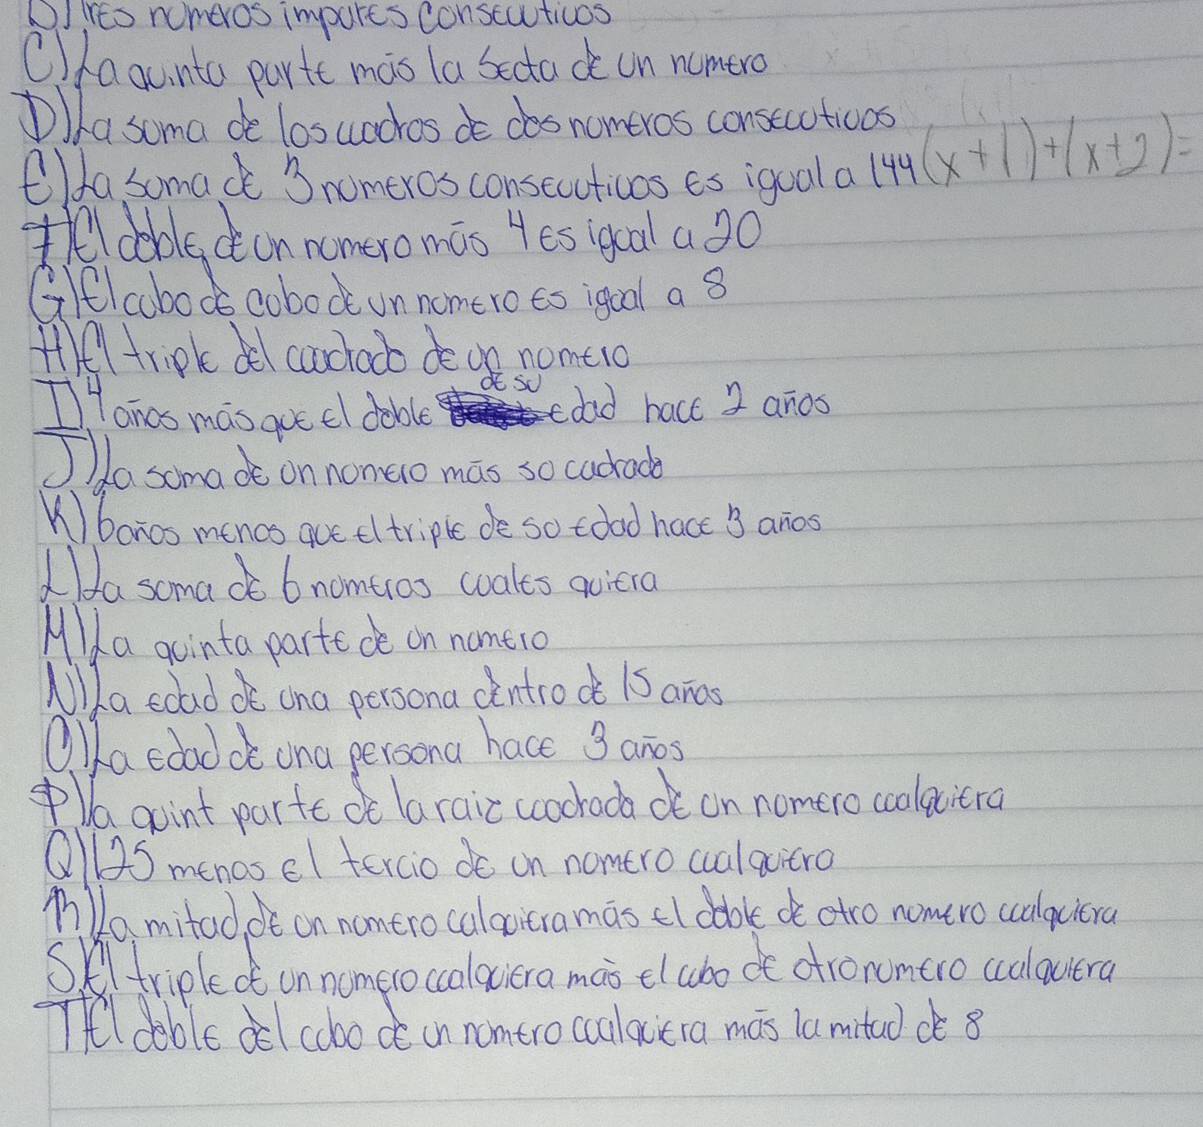 B) Tres numeros impares consecuticos
C) La quinta parte más la secta de un numero
D) La suma de los cuadros de dos numeros consecuticos
E) La suma de 3 numeros consecuticos es igual a 144 (x+1)+(x+2)=
F) El doble de un numero más 4 es igual a 20
G) El cubo de cobo de un numero es igual a 8
H) El triple del cuadrado de un numero
I) 4 años más que el doble de su edad hace 2 años
J) La suma de un numero más so cudrado
K) 6 años menos que el triple de so edad hace 3 años
L) La suma de 6 numeros cuales quiera
M) La quinta parte de un numero
N) La edad de una persona dentro de 15 años
O) La edad de una persona hace 3 años
P) la quint parte de la raiz cuadrada de un numero cualquiera
Q) 125 menos el tercio de un numero cualquiero
R) La mitad de un numero calquiera más el doble de otro numero cualquiera
S) El triple de un numero cualquiera más el cubo de otro numero cualquiera
T) El doble del cubo de un numero cualquiera más la mitad de 8